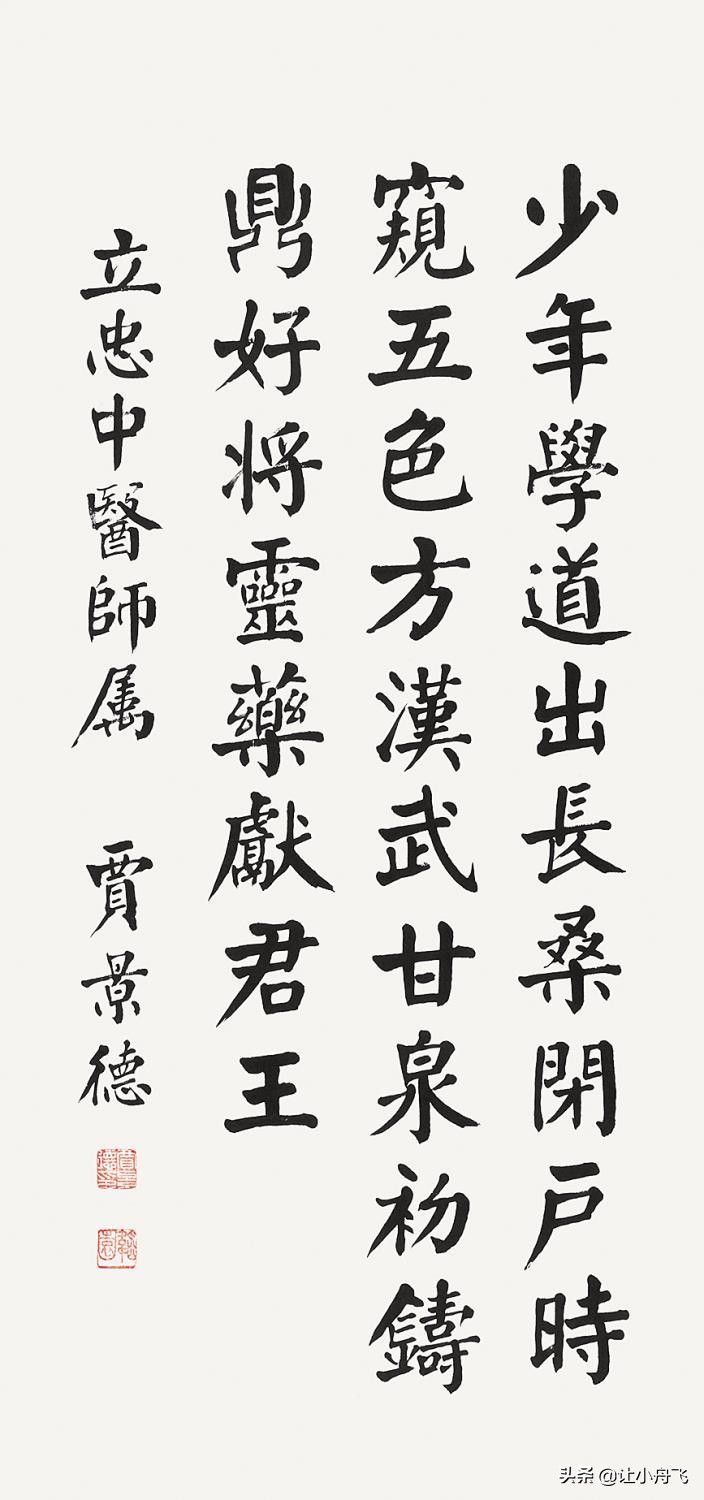 少年學道出長桑閉戸時
窺五色方漢武甘泉初鑄
鼎好将靈藥獻君王
立忠中醫師属 賈景德
头条 @让小舟飞